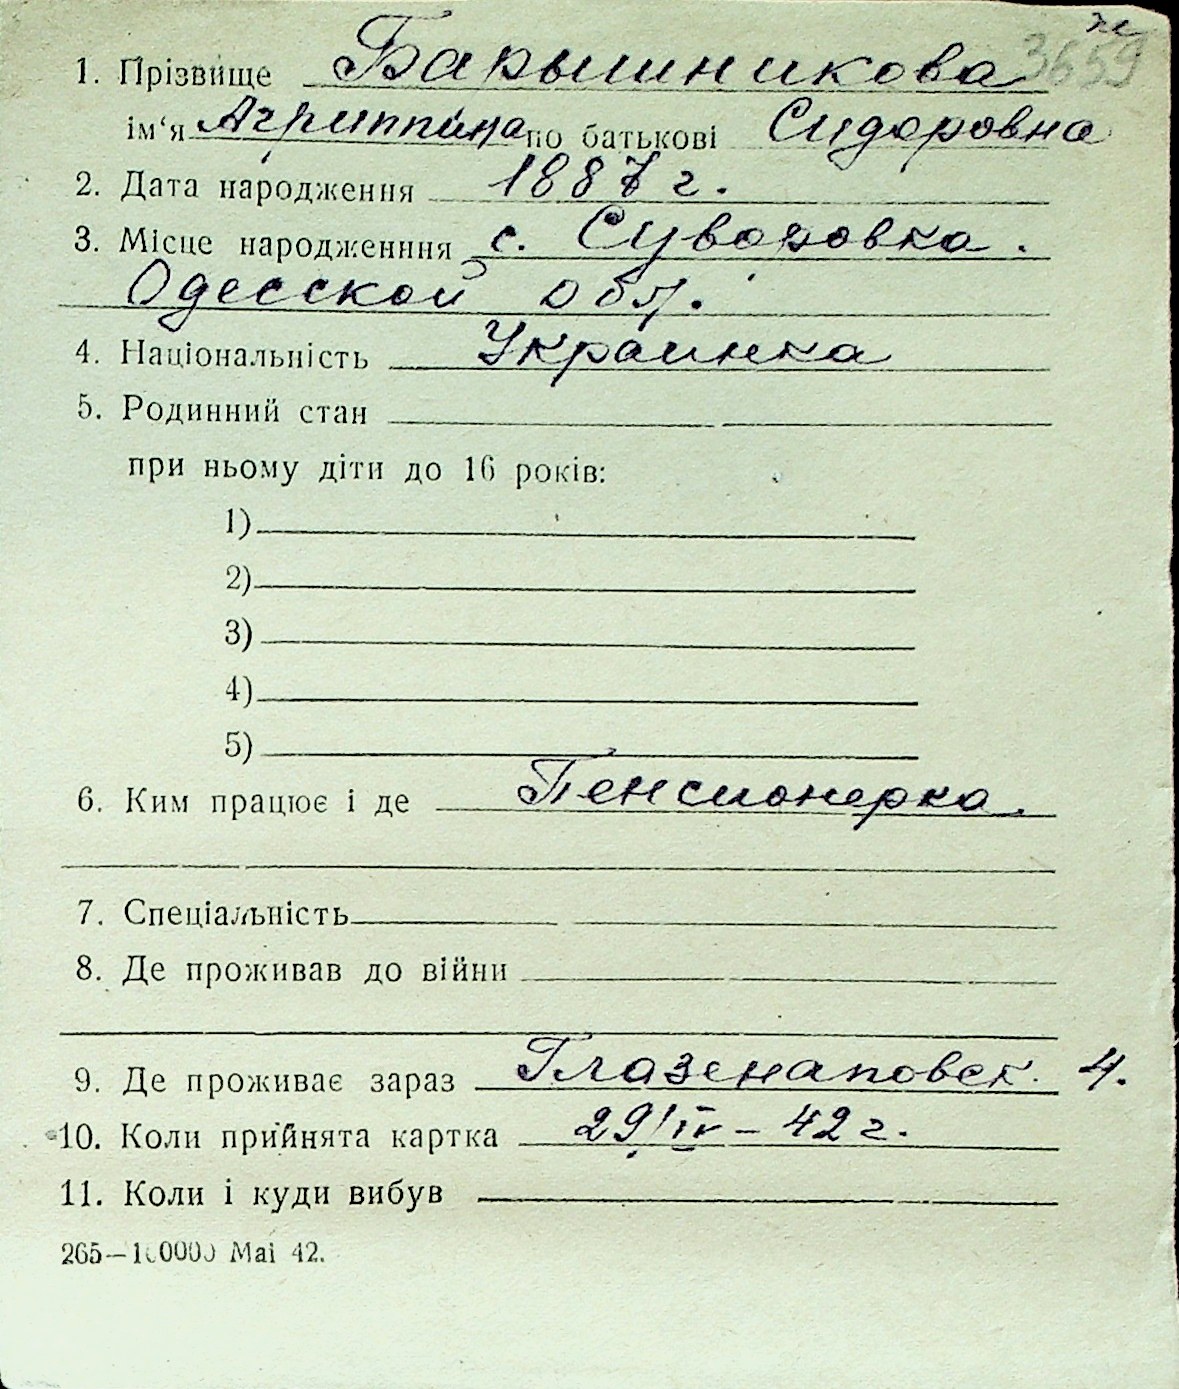 3659
1. Прізвище Барышникова
ім‘я Агриппина по батькові Сидоровна
2. Дата народження 1887 г.
3. Місце народженння с. Суворовка.
Одесской обл.
4. Національність Украинка
5. Родинний стан
при ньому діти до 16 років:
1)
2)
3)
4)
5)
6. Ким працює і де Пенсионерка.
7. Спеціальність
8. Де проживав до війни
9. Де проживає зараз Глазенаповск. 4.
10. Коли прийнята картка 29/IV – 42 г.
11. Коли і куди вибув
265—100000 Mai 42.